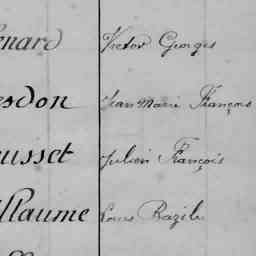 énard Victor Georges
esdon Jean Marie François
usset Julien François
llaume Louis Bazile